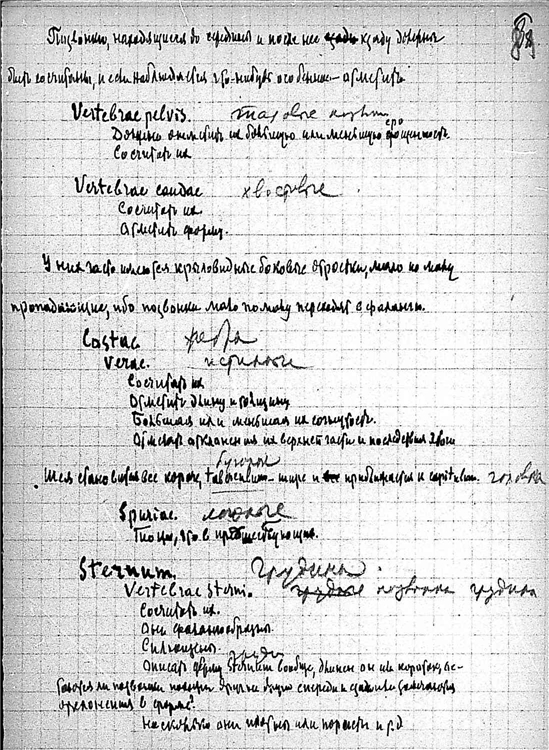 Позвонки, находящиеся до середины и после нее сзади кзади должны
быть сосчитаны, и если наблюдается что-нибудь особенное — отметить
Vertebrae pelvis. тазовые
Должно отметить их большую или меньшую сро
сращенность.
Сосчитать их
Vertebrae caudae хвостовые
Сосчитать их.
Отметить форму.
У них часто имеются крыловидные боковые отростки, мало по малу
пропадающие, ибо позвонки мало по малу переходят в фаланги.
Costae ребра
Verae. истинные
Сосчитать их
Отметить длину и толщину
Большая или меньшая их согнутость.
Отметить отклонения их верхней части и последствия этого
бугорок
Шея становится все короче, tuberculum — шире и все приближается к capitulum. головка
Spuriae. ложные
То что в предшествующих.
Sternum. Грудина.
Vertebrae Sterni. грудные позвонки грудины
Сосчитать их.
Они фалангообразны.
Сплющены.
груди
Описать форму Sternum вообще, длинен он или короток, ка-
саются ли позвонки друг друга спереди и сзади
отклонения в форме?
Насколько они плотны или пористы и т.д